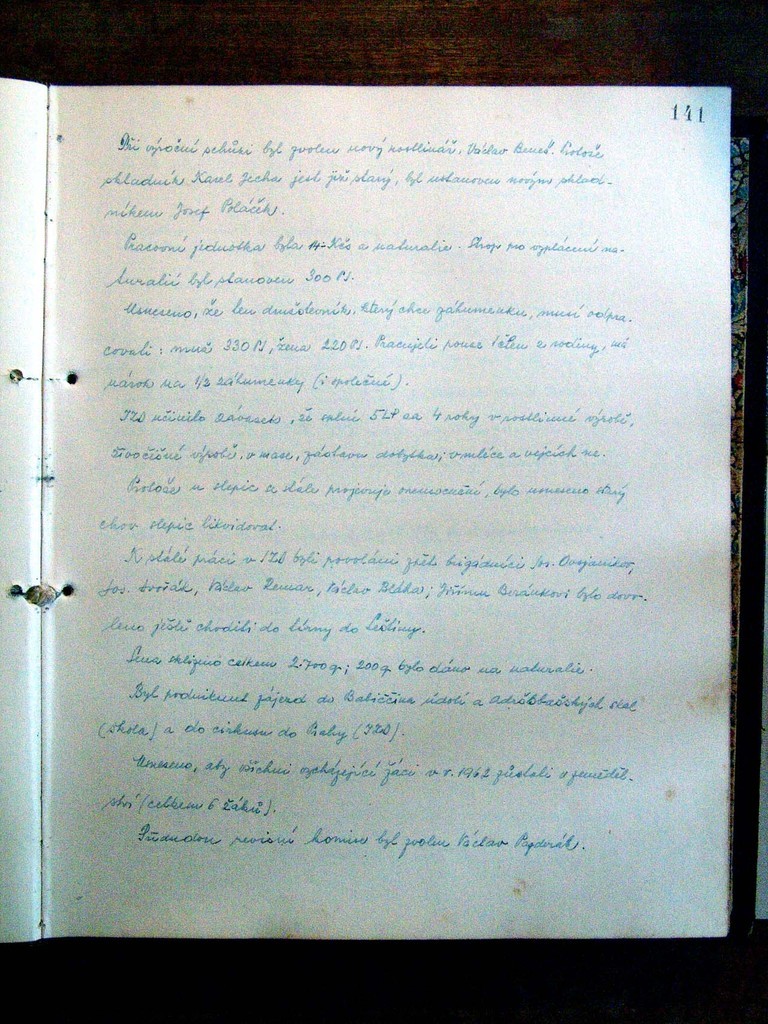 141
Při výroční schůzi byl zvolen nový rostlinář, Václav Beneš. Protože
skladník Karel Jecha jest již starý, byl ustanoven novým sklad-
níkem Josef Poláček.
Pracovní jednotka byla 14-Kčs a naturalie. Strop pro vyplácení na-
turalií byl stanoven 300 PJ.
Usneseno, že ten družstevník, který chce záhumenku, musí odpra-
covati: muž 330 PJ, žena 220 PJ. Pracuje-li pouze 1 člen z rodiny, má
nárok na 1/2 záhumenky (i společné).
JZD učinilo závazek, že splní 5LP za 4 roky v rostlinné výrobě,
živočišné výrobě, v mase, zástavu dobytka; v mléce a vejcích ne.
Protože u slepic se stále projevuje onemocnění, bylo usneseno starý
chov slepic likvidovat.
K stálé práci v JZD byli povoláni zpět brigádníci Jos. Ovsjanikov,
Jos. Dvořák, Václav Zeman, Václav Bláha; Jiřímu Beránkovi bylo dovo-
leno ještě choditi do továrny do
Sena sklizeno celkem 2.700 q; 200 q bylo dáno na naturalie.
Byl podniknut zájezd do Babiččina údolí a Adršbašských skal
(škola) a do cirkusu do Prahy (JZD).
Usneseno, aby všichni vycházející žáci v r. 1962 zůstali v zeměděl-
ství (celkem 6 žáků).
Předsedou revisní komise byl zvolen Václav